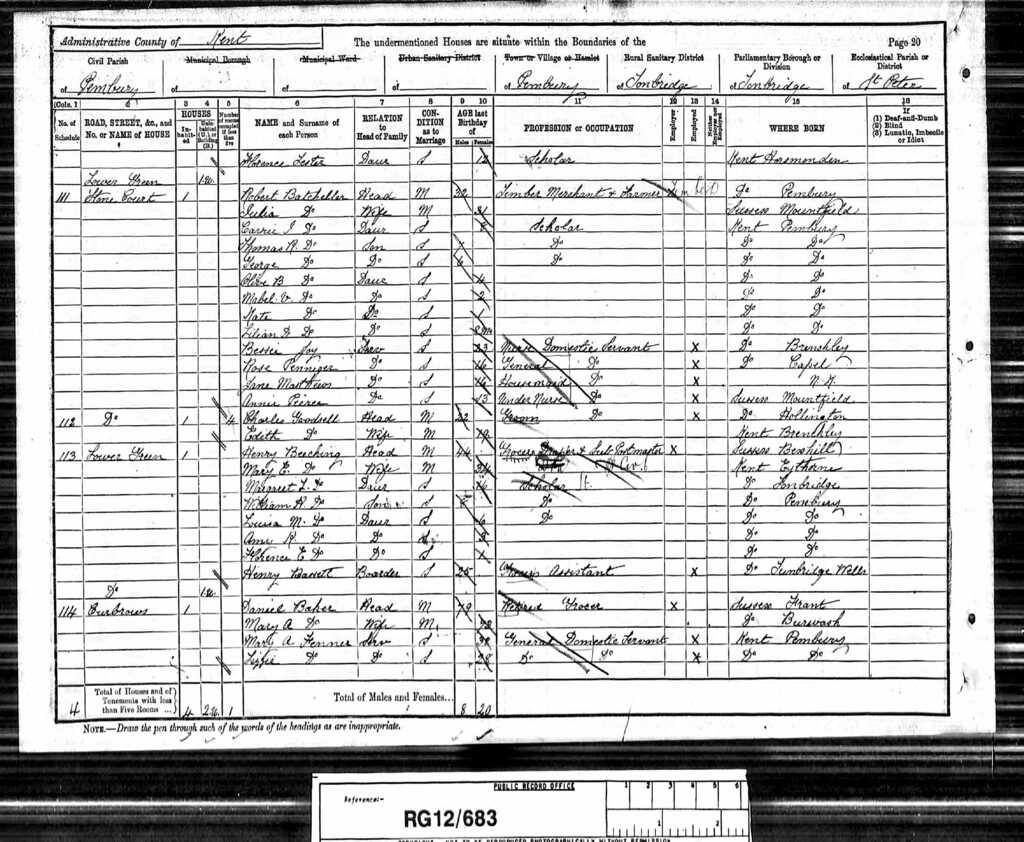 Administrative County of Kent The undermentioned Houses are situate within the Boundaries of the Page 20
Civil Parish Municipal Borough Municipal Ward Urban Sanitary District Town or Village or Hamlet Rural Sanitary District Parliamentary Borough or Division Ecclesiastical Parish or District
of Pembury of of of of Pembury of Tonbridge of Tonbridge of St Peter
Cols. 1 2 3 4 5 6 7 8 9 10 11 12 13 14 15 16
No. of Schedule ROAD, STREET, &c., and No. or NAME of HOUSE HOUSES Inhabited Uninhabited (U.), or Building (B.) Number of rooms occupied if less than five NAME and Surname of each Person RELATION to Head of Family CONDITION as to Marriage AGE last Birthday of Males Females PROFESSION or OCCUPATION Employer Employed Neither Employer nor Employed WHERE BORN (1) Deaf-and-Dumb (2) Blind (3) Lunatic, Imbecile or Idiot
Florence Lester Daur S 12 Scholar Kent Horsmonden
Lower Green 1 u.
111 Stone Court 1 Robert Batcheller Head M 32 Timber Merchant & Farmer Do Pembury
Julia Do Wife M 31 Sussex Mountfield
Carrie J Do Daur S Scholar Kent Pembury
Thomas R. Do Son S 7 Do Do Do
George Do Do S 6 Do Do Do
Olive B Do Daur S 4 Do Do
Mabel V. Do Do S 2 Do Do
Kate Do Do S 1 Do Do
Lilian D Do Do S Do Do
Bessie Joy Serv S 23 Nurse Domestic Servant X Do Brenchley
Rose Penniger Do S 16 General Do X Do Capel
Jane Matthews Do S 16 Housemaid Do X N. K.
Annie Peirce Do S 13 Under Nurse Do X Sussex Mountfield
112 Do 1 4 Charles Goodsell Head M 22 Groom Do X Do Hollington
Edith Do Wife M 19 Kent Brenchley
113 Lower Green 1 Henry Beeching Head M 44 Grocer Draper & Sub Postmaster X Sussex Bexhill
Mary E. Do Wife M 34 Kent Eythorne
Margaret L. Do Daur S 14 Scholar Do Tonbridge
William H. Do Son S 8 Do Do Pembury
Louisa M. Do Daur S 6 Do Do Do
Amy R. Do Do S 3 Do Do
Florence E Do Do S 1 Do Do
Henry Bassett Boarder S 25 Grocers Assistant X Do Tunbridge Wells
Do 1 u.
114 Burbrows 1 Daniel Baker Head M 79 Retired Grocer X Sussex Frant
Mary A Do Wife M Do Burwash
Mary A Fenner Serv S 32 General Domestic Servant X Kent Pembury
Lizzie Do Do S 28 Do Do X Do Do
4 Total of Houses and of Tenements with less than Five Rooms 4 2 u. 1 Total of Males and Females... 8 20
NOTE.—Draw the pen through such of the words of the headings as are inappropriate.
PUBLIC RECORD OFFICE
1 2 3 4 5 6
Reference:-
RG12/683
1 2
COPYRIGHT - NOT TO BE REPRODUCED PHOTOGRAPHICALLY WITHOUT PERMISSION